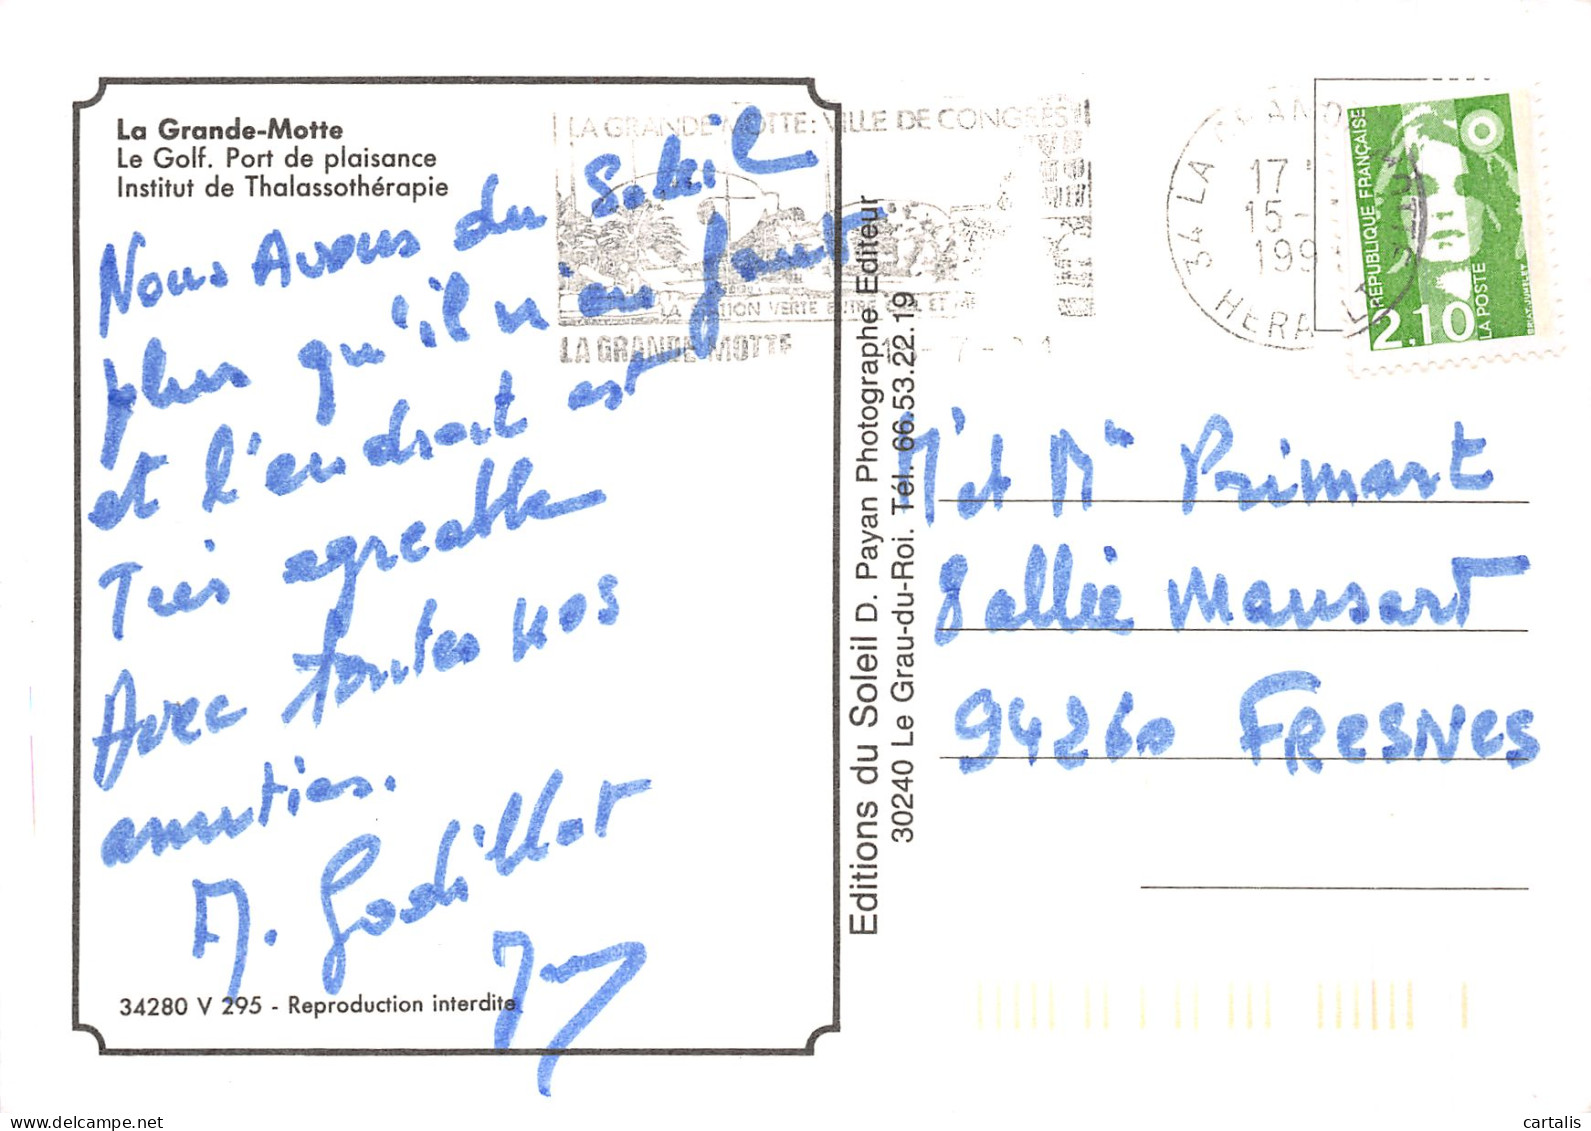 La Grande-Motte
Le Golf. Port de plaisance
Institut de Thalassothérapie
Nous Avons du Soleil
plus qu'il n'en faut
et l'endroit est
Très agreable
Avec toutes nos
amities.
A. Godillot
34280 V 295 - Reproduction interdite
Editions du Soleil D. Payan Photographe Editeur
30240 Le Grau-du-Roi. Tél. 66.53.22.19
LA GRANDE MOTTE: VILLE DE CONGRES
LA STATION VERTE ENTRE CIEL ET MER
LA GRANDE MOTTE
34 LA GRANDE MOTTE
17
15 -
199
HERAULT
REPUBLIQUE FRANÇAISE
2,10
LA POSTE
BRIAT. JUMELET
Mr et Mme Primart
Mansart
94260 FRESNES
cartalis